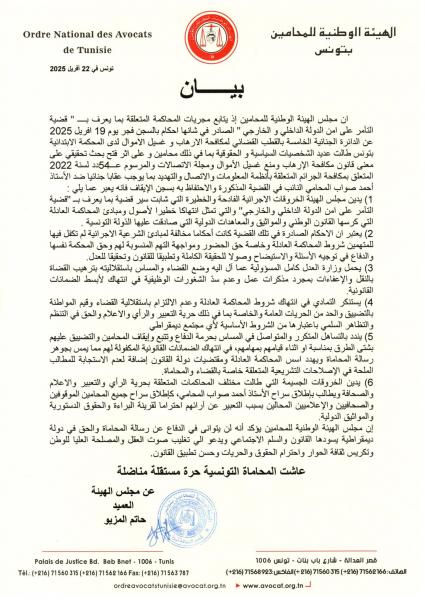 Ordre National des Avocats
de Tunisie
الهيئة الوطنية للمحامين
بتونس
تونس في 22 افريل 2025
بيـــان
ان مجلس الهيئة الوطنية للمحامين إذ يتابع مجريات المحاكمة المتعلقة بما يعرف بـــ " قضية
التآمر على امن الدولة الداخلي و الخارجي " الصادر في شانها احكام بالسجن فجر يوم 19 افريل 2025
عن الدائرة الجنائية الخامسة بالقطب القضائي لمكافحة الارهاب و غسيل الاموال لدى المحكمة الابتدائية
بتونس طالت عديد الشخصيات السياسية و الحقوقية بما في ذلك محامين و على اثر فتح بحث تحقيقي على
معنى قانون مكافحة الإرهاب ومنع غسيل الأموال ومجلة الاتصالات والمرسوم عـ54ـدد لسنة 2022
المتعلق بمكافحة الجرائم المتعلقة بأنظمة المعلومات والاتصال والتهديد بما يوجب عقابا جنائيا ضد الأستاذ
أحمد صواب المحامي النائب في القضية المذكورة و والاحتفاظ به بسجن الإيقاف فإنه يعبر عما يلي :
1) يدين مجلس الهيئة الخروقات الاجرائية الفادحة والخطيرة التي شابت سير قضية ما يعرف بـ "قضية
التآمر على امن الدولة الداخلي والخارجي" والتي تمثل انتهاكا خطيرا لأصول ومبادئ المحاكمة العادلة
التي كرسها القانون الوطني والمواثيق والمعاهدات الدولية التي صادقت عليها الدولة التونسية .
2) يعتبر ان الاحكام الصادرة في تلك القضية كانت أحكاما مخالفة لمبادئ الشرعية الاجرائية لم تكفل فيها
للمتهمين شروط المحاكمة العادلة وخاصة حق الحضور ومواجهة التهم المنسوبة لهم وحق المحكمة نفسها
والدفاع في توجيه الأسئلة والاستيضاح وصولا للحقيقة الكاملة وتطبيقا للقانون وتحقيقا للعدل.
3) يحمل وزارة العدل كامل المسؤولية عما آل اليه وضع القضاء والمساس باستقلاليته بترهيب القضاة
بالنقل والإعفاءات بمجرد مذكرات عمل وعدم سدّ الشغورات الوظيفية في انتهاك لأبسط الضمانات
القانونية.
4) يستنكر التمادي في انتهاك شروط المحاكمة العادلة وعدم الالتزام باستقلالية القضاء وقيم المواطنة
بالتضييق والحد من الحريات العامة والخاصة بما في ذلك حرية التعبير والرأي والاعلام والحق في التنظم
والتظاهر السلمي باعتبارها من الشروط الأساسية لأي مجتمع ديمقراطي
5) يندد بالتساهل المتكرر والمتواصل في المساس بحرمة الدفاع وتتبع وإيقاف المحامين والتضييق عليهم
بشتى الطرق بمناسبة او اثناء قيامهم بمهامهم، في انتهاك الضمانات القانونية المكفولة لهم مما يمس بجوهر
رسالة المحاماة ويهدد اسس المحاكمة العادلة ومقتضيات دولة القانون إضافة لعدم الاستجابة للمطالب
الملحة في الإصلاحات التشريعية المتعلقة خاصة بالقضاء والمحاماة.
6) يدين الخروقات الجسيمة التي طالت مختلف المحاكمات المتعلقة بحرية الرأي والتعبير والاعلام
والصحافة ويطالب بإطلاق سراح الأستاذ أحمد صواب المحامي، كإطلاق سراح جميع المحامين الموقوفين
والصحافيين والإعلاميين المحالين بسبب التعبير عن آرائهم احتراما لقرينة البراءة والحقوق الدستورية
والمواثيق الدولية.
إن مجلس الهيئة الوطنية للمحامين يؤكد أنه لن يتوانى في الدفاع عن رسالة المحاماة والحق في دولة
ديمقراطية يسودها القانون والسلم الاجتماعي ويدعو الى تغليب صوت العقل والمصلحة العليا للوطن
وتكريس ثقافة الحوار واحترام الحقوق والحريات وحسن تطبيق القانون.
عاشت المحاماة التونسية حرة مستقلة مناضلة
عن مجلس الهيئة
العميد
حاتم المزيو
Palais de Justice Bd. Beb Bnet - 1006 - Tunis
قصر العدالة - شارع باب بنات - تونس 1006
Tél.: (+216) 71 560 315 (+216) 71 562 166 Fax: (+216) 71 563 787
الهاتف: 71562166 (216+) 71560315 (216+) الفاكس: 71568923 (216+)
ordreavocatstunisie@avocat.org.tn
www.avocat.org.tn